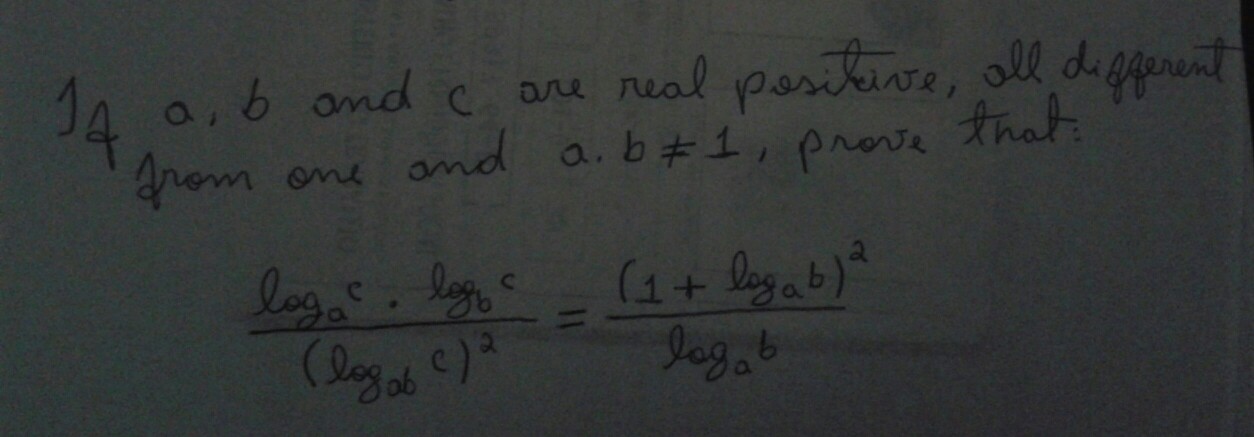 If a, b and c are real positive, all different
from one and a.b ≠ 1, prove that:
\frac{\log_a c \cdot \log_b c}{(\log_{ab} c)^2} = \frac{(1 + \log_a b)^2}{\log_a b}